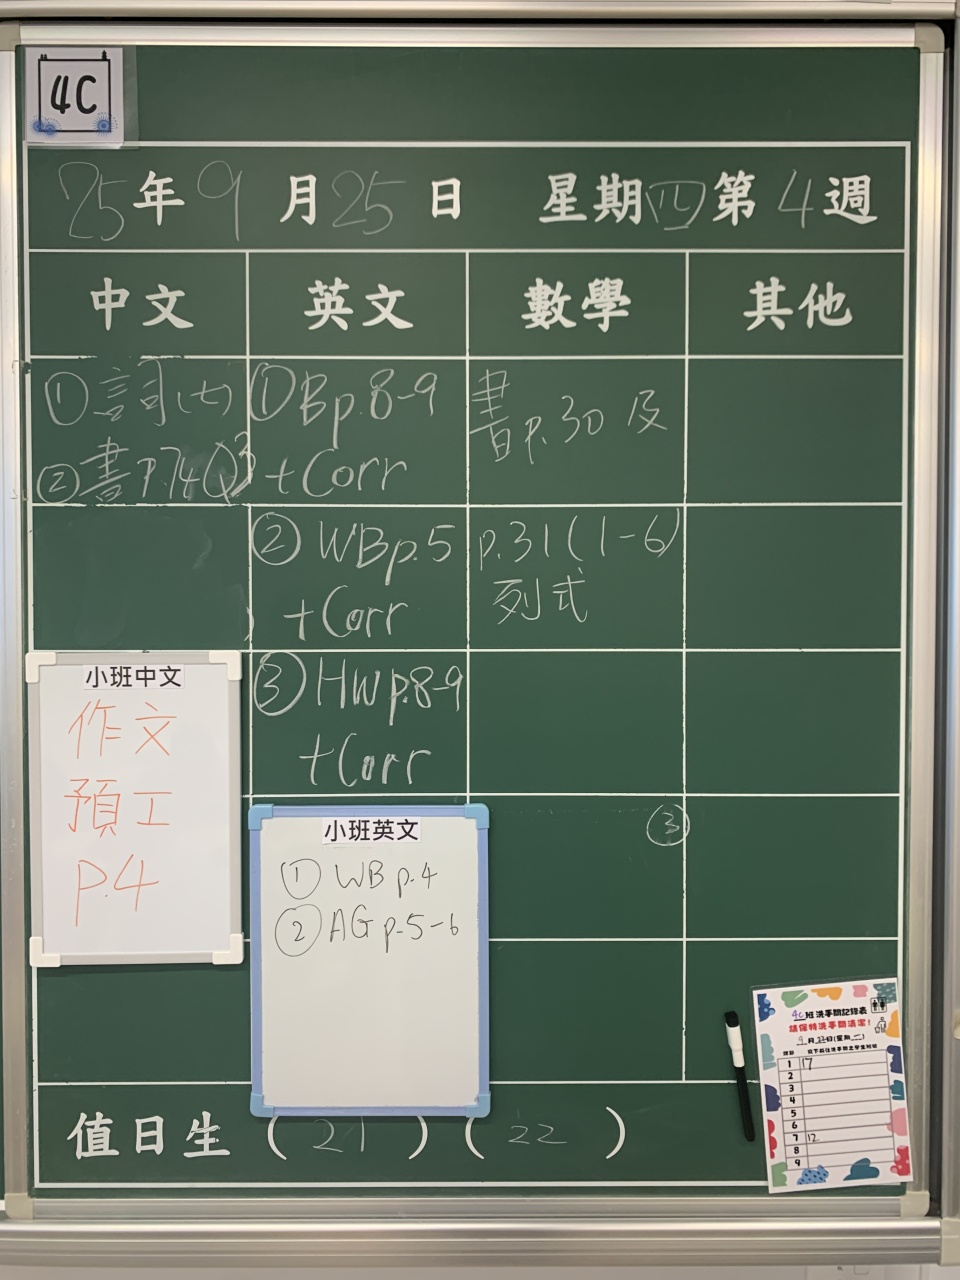 4C
25年9月25日 星期四第4週
中文 英文 數學 其他
①詞(七)
②書P.74Q3
①Bp.8-9
+Corr
②WBp.5
+Corr
③HWp.8-9
+Corr
書p.30及
p.31(1-6)
列式
③
小班中文
作文
預工
P.4
小班英文
① WB p.4
② AG p.5-6
值日生(21)(22)
4C班洗手間記錄表
請保持洗手間清潔!
1 17
2
3
4
5
6
7 12
8
9